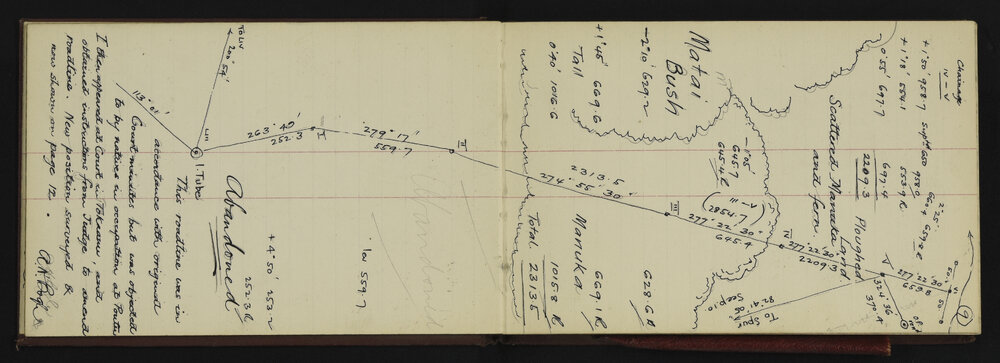 9
Chainage
IV - V
+1°50' 958.7 Suptd 650
958.0
+1°18' 554.1
553.9 R
0°55' 697.7
697.4
2209.3
2°25'
660.4 659.8
Scattered Manuka
and fern.
Ploughed
Land
277°22'30"
659.8
V
324°36'
37°
50
50
IV
277°22'30"
2209.3
To Spur
82.41
See p. 10
Matai
Bush
-1°05'
645.7
645.4 R
III - V
(2854.7)
277°22'30"
645.4
III
-2°10' 629.2
628.6 R
+1°45' 669.6
669.1 R
Tall
Manuka
0°40' 1016.6
1015.8 R
Total 2313.5
2313.5
274°55'30"
II
279°17'
559.7
Lev 559.7
I
263°40'
252.3
+4°50' 253.2
252.3 R
To LIV
200°54'
LIII
I. Tube
113°01'
Abandoned
This roadline was in
accordance with original
Court minutes but was objected
to by natives in occupation at Poutu
I then appeared at Court in Tokaanu, and
obtained instructions from Judge to amend
roadline. New position surveyed &
now shown on page 12.